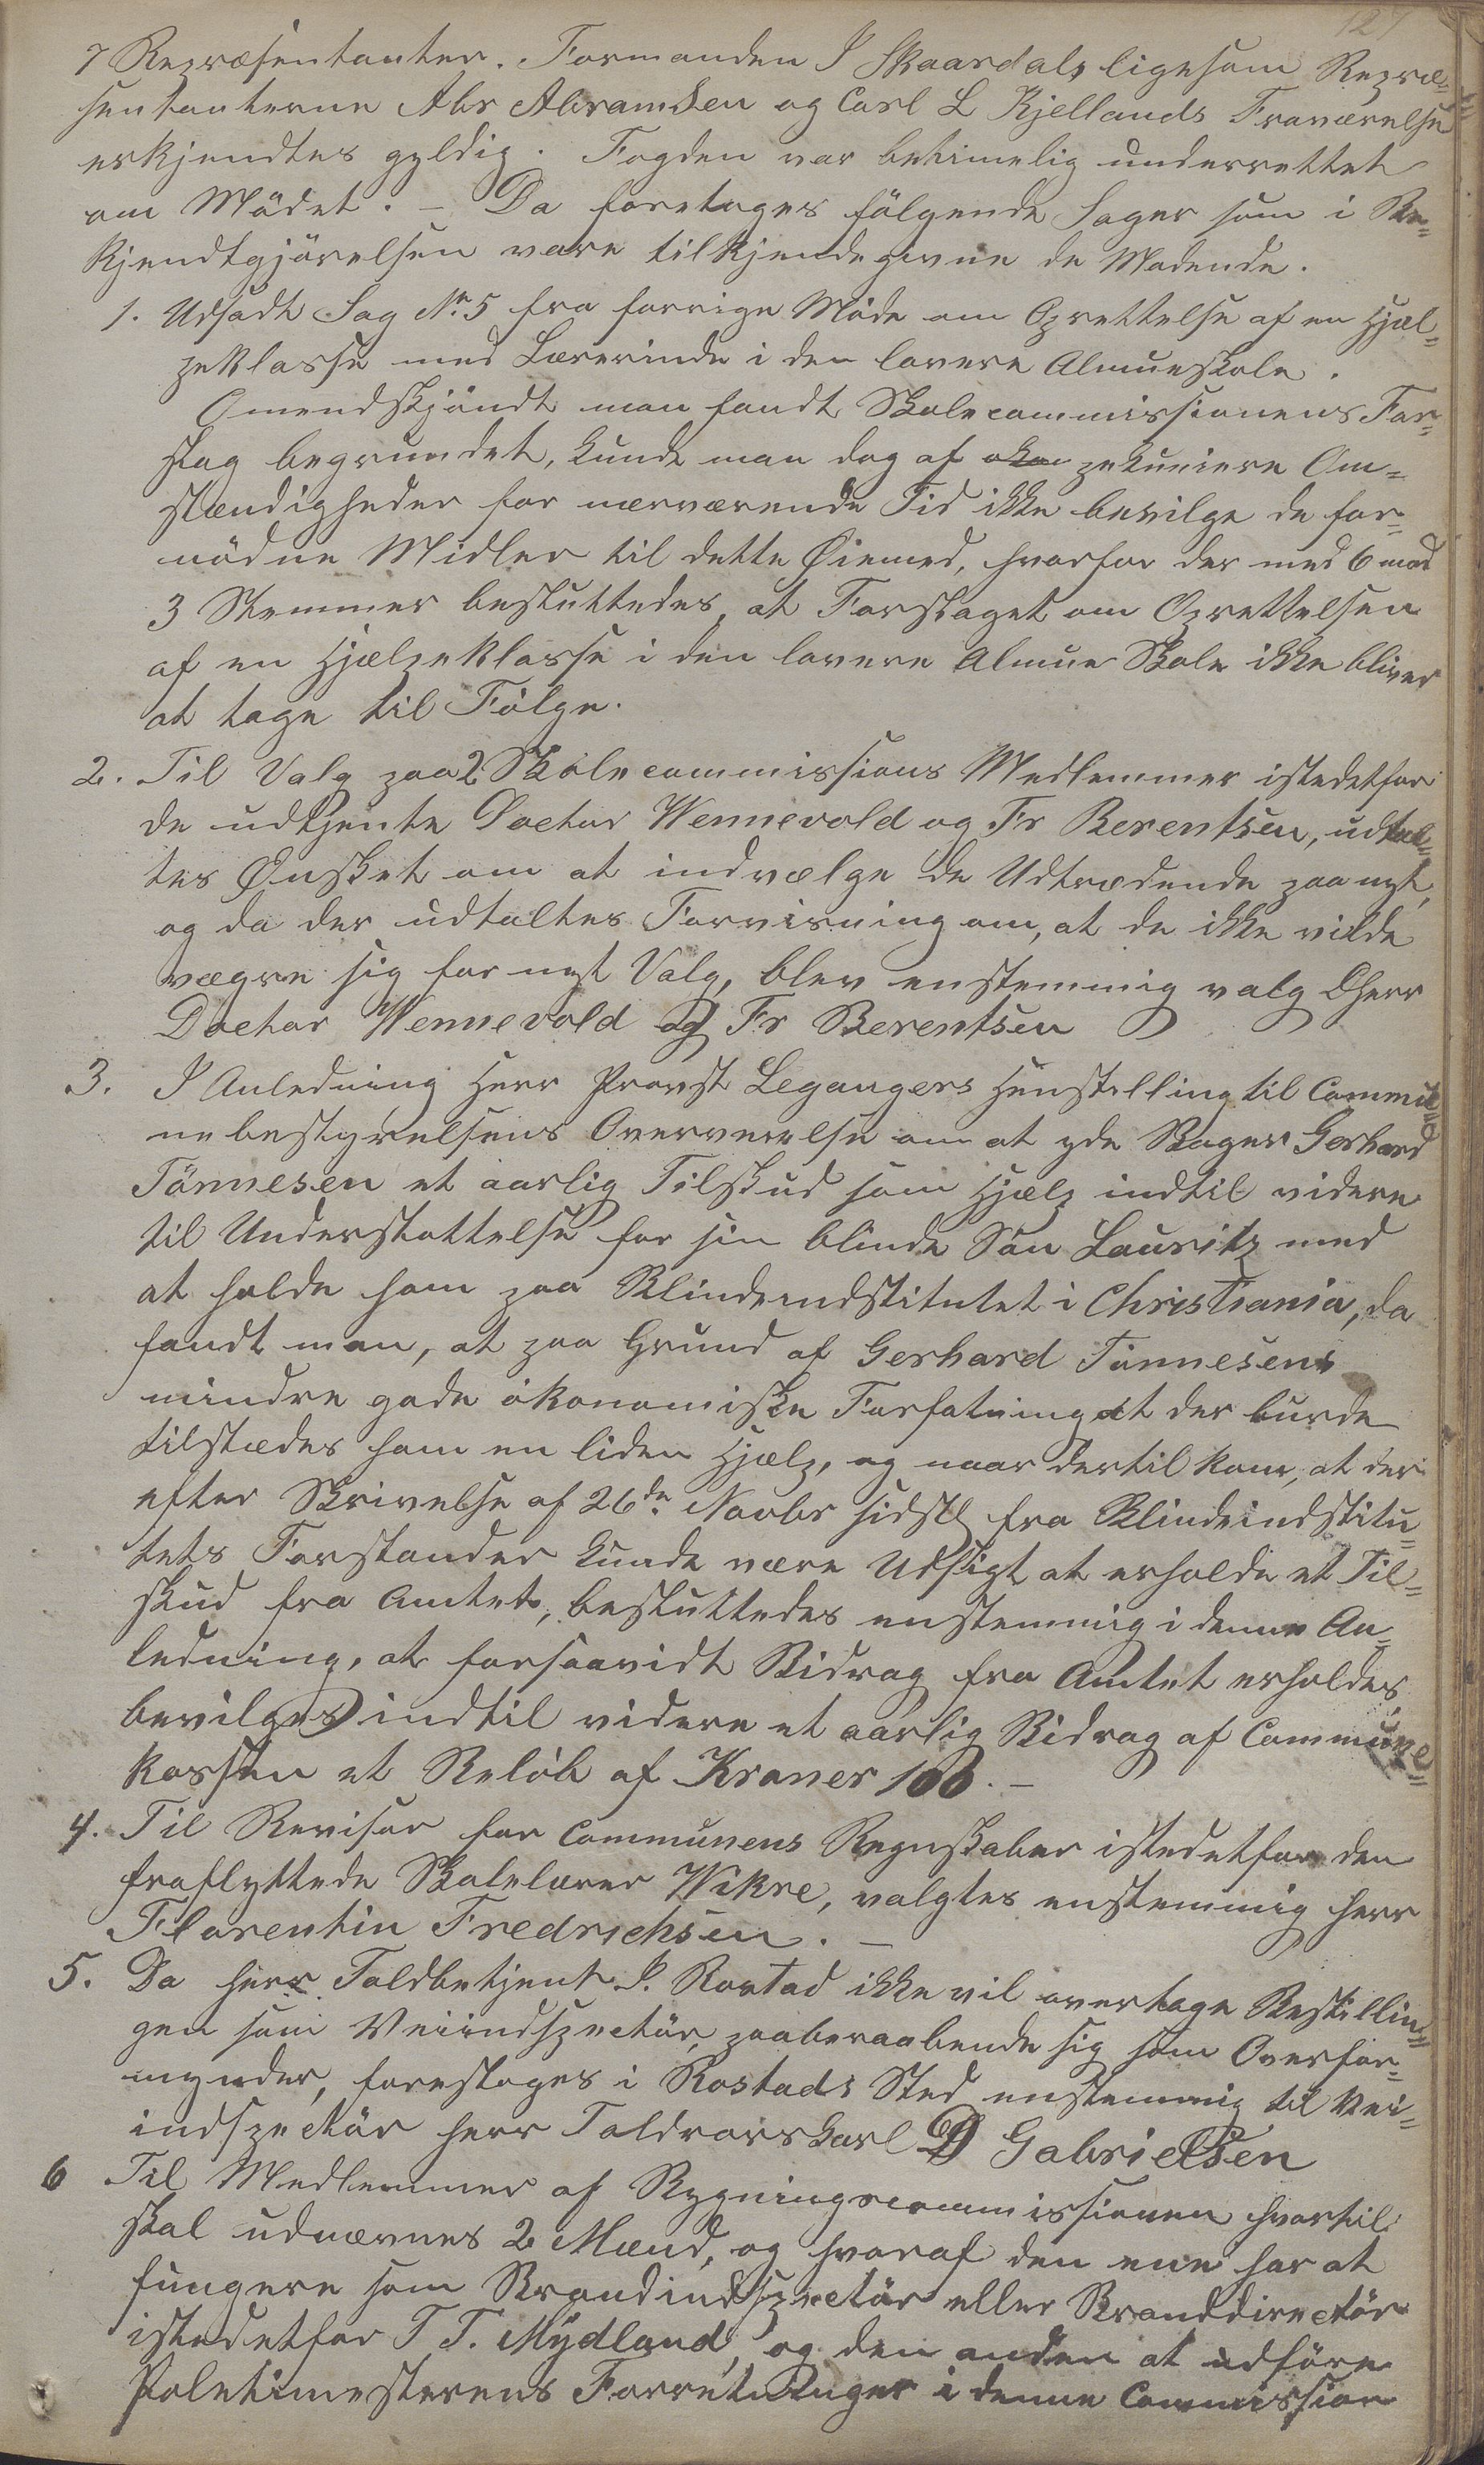 127
7 Repræsentanter. Formanden I Skaardals ligesom Repræ-
sentanterne Abr Abramsen og Carl L Kjellands Fraværelse
erkjendtes gyldig. Fogden var betimelig underrettet
om Mödet. – Da foretoges fölgende Sager som i Be-
kjendtgjörelsen vare tilkjendegivne de Mödende.
1. Udsadt Sag No 5 fra forrige Möde om Oprettelse af en Hjæl-
peklasse med Lærerinde i den lavere Almueskole.
Omendskjöndt man fandt Skolecommissionens For-
slag begrundet, kunde man dog af pekuniere Om-
stændigheder for nærværende Tid ikke bevilge de for-
nödne Midler til dette Øiemed, hvorfor der med 6 mod
3 Stemmer besluttedes, at Forslaget om Oprettelsen
af en Hjælpeklasse i den lavere Almue Skole ikke bliver
at tage til Fölge.
2. Til Valg paa 2 Skolecommissions Medlemmer istedetfor
de udtjente Doctor Wennevold og Fr Berentsen, udtal-
tes Ønsket om at indvælge de Udtrædende paa nyt,
og da der udtaltes Forvisning om, at de ikke vilde
vægre sig for nyt Valg, blev enstemmig valg Dherr
Doctor Wennevold og Fr Berentsen
3. I Anledning Herr Provst Legangers Henstilling til Commu-
nebestyrelsens Overveielse om at yde Bager Gerhard
Tönnesen et aarlig Tilskud som Hjælp indtil videre
til Understøttelse for sin blinde Sön Lauritz med
at holde ham paa Blindeindstitutet i Christiania, da
fandt man, at paa Grund af Gerhard Tönnesens
mindre gode ökonomiske Forfatning at der burde
tilstædes ham en liden Hjælp, og naar dertil kom, at der
efter Skrivelse af 26de Novbr sidstl fra Blindeindstitu-
tets Forstander kunde være Udsigt at erholde et Til-
skud fra Amtet, besluttedes enstemmig i denne An-
ledning, at forsaavidt Bidrag fra Amtet erholdes,
bevilges indtil videre et aarlig Bidrag af Commune-
kassen et Belöb af Kroner 100. –
4. Til Revisor for Communens Regnskaber istedetfor den
fraflyttede Skolelærer Wikre, valgtes enstemmig Herr
Florentin Fredrichsen. –
5. Da Herr Toldbetjent I. Rostad ikke vil overtage Bestillin-
gen som Veiindspectör, paaberaabende sig som Overfor-
mynder, foresloges i Rostads Sted enstemmig til Vei-
indspectör Herr Toldrorskarl D Gabrielsen
6 Til Medlemmer af Bygningscommissionen hvortil
skal udnævnes 2 Mænd, og hvoraf den ene har at
fungere som Brandindspectör eller Branddirectör
istedetfor T T. Mydland, og den anden at udföre
Poletimesterens Forretninger i denne Commission